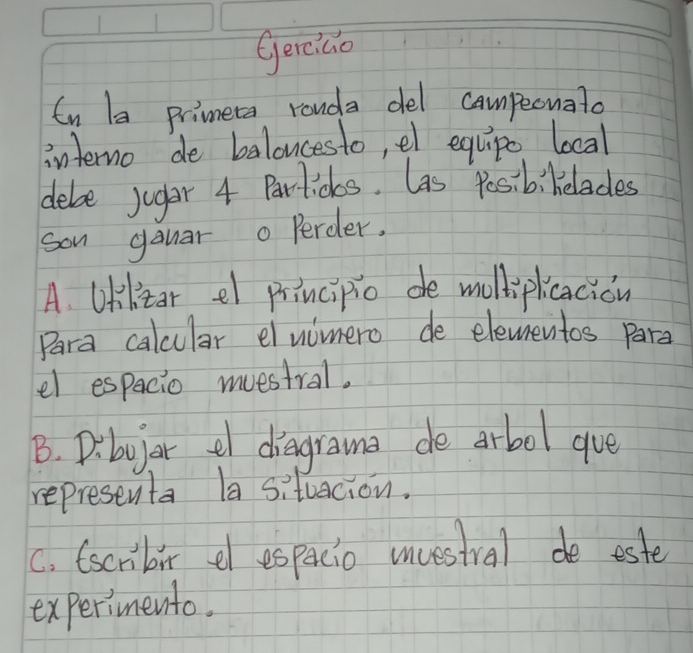 Ejercicio
En la primera ronda del campeonato
interno de baloncesto, el equipo local
debe jugar 4 Partidos. Las Posibilidades
son ganar o Perder.
A. Utilizar el principio de multiplicación
Para calcular el número de elementos Para
el espacio muestral.
B. Dibujar el diagrama de arbol que
representa la situación.
C. Escribir el espacio muestral de este
experimento.